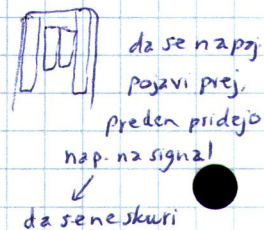 da se napaj
pojavi prej,
preden pridejo
nap. na signal
da se ne skuri